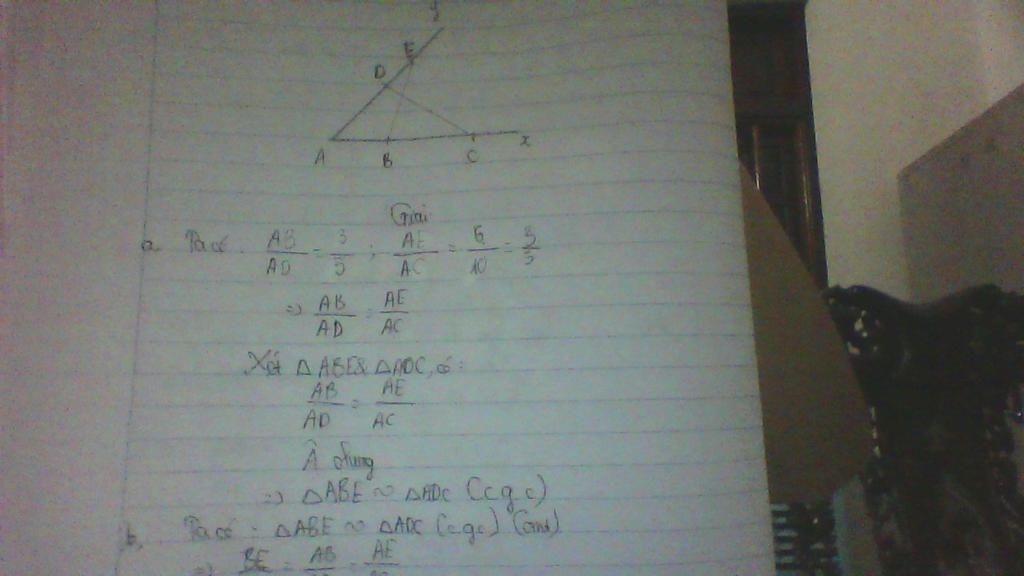 y
E
D
A B C x
Giải
a Ta có: AB/AD = 3/5 ; AE/AC = 6/10 = 3/5
=> AB/AD = AE/AC
Xét △ABE & △ADC, có:
AB/AD = AE/AC
Â chung
=> △ABE ~ △ADC (c g c)
b, Ta có: △ABE ~ △ADC (c g c) (cmt)
=> BE = AB = AE